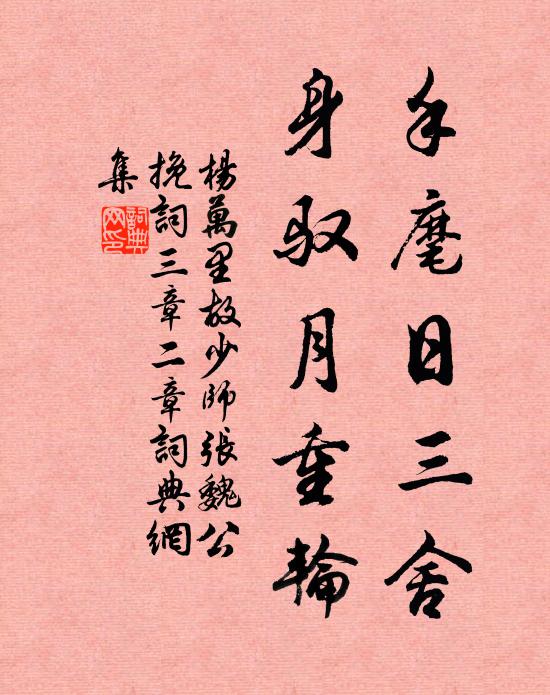 手麾日三舍
身驭月重輪
楊萬里故少師張魏公
挽詞三章二章詞典網
集
詞典
网印